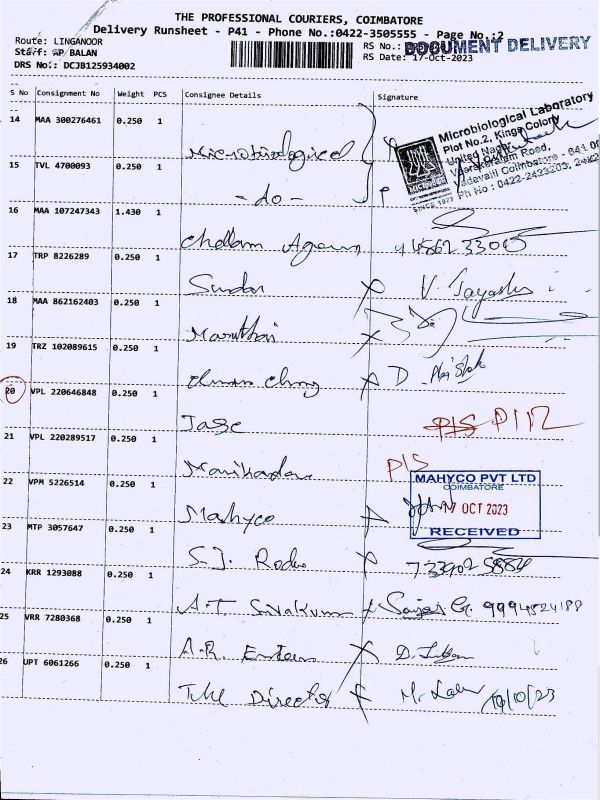 THE PROFESSIONAL COURIERS, COIMBATORE
Delivery Runsheet - P41 - Phone No.:0422-3505555 - Page No.:2
Route: LINGANOOR
RS No.:
DOCUMENT DELIVERY
Staff: AP BALAN
RS Date: 17-Oct-2023
DRS No.: DCJB125934002
S No Consignment No Weight PCS Consignee Details Signature
14 MAA 300276461 0.250 1
Microbiological
Microbiological Laboratory
Plot No.2, Kings Colony
United Nagar
Veerakeralam Road,
Vadavalli Coimbatore - 641 0
Ph No : 0422-2423203, 2422
SINCE 1977
15 TVL 4700093 0.250 1
- do -
16 MAA 107247343 1.430 1
Chellam Agency
17 TRP 8226289 0.250 1
Sundar V. Jayashri
18 MAA 862162403 0.250 1
Maruthai
19 TRZ 102089615 0.250 1
D
20 VPL 220646848 0.250 1
Jasc PIS
21 VPL 220289517 0.250 1
Manikandan PIS
22 VPM 5226514 0.250 1
Mahyco
MAHYCO PVT LTD
COIMBATORE
17 OCT 2023
RECEIVED
23 MTP 3057647 0.250 1
S.J. 733902 5884
24 KRR 1293088 0.250 1
A.T. Sivakumar G. 9994824188
25 VRR 7280368 0.250 1
A.R.
26 UPT 6061266 0.250 1
The Director